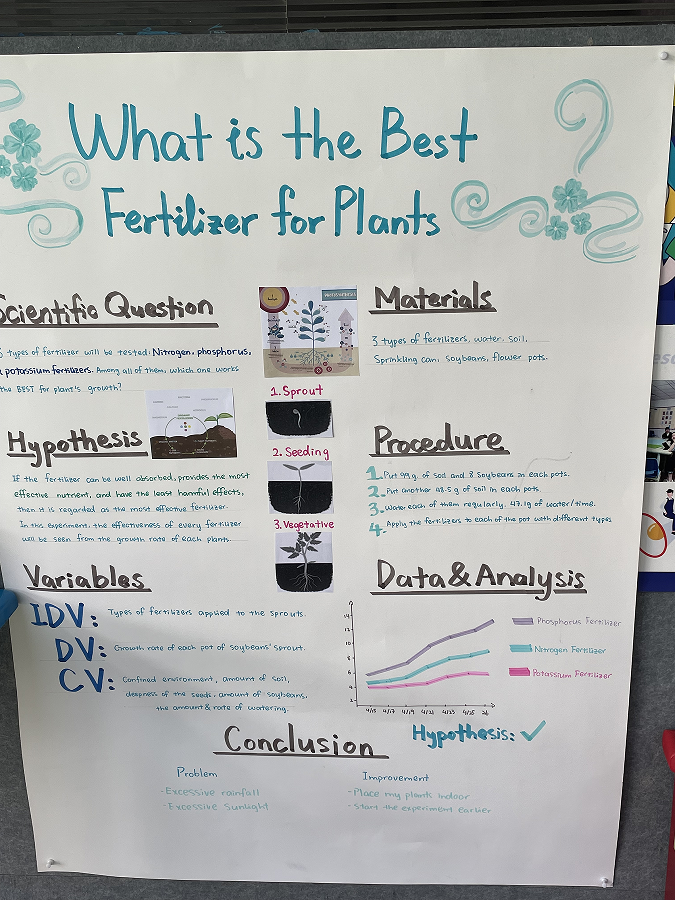 What is the Best
Fertilizer for Plants
Scientific Question
types of fertilizer will be tested: Nitrogen, phosphorus,
potassium fertilizers. Among all of them, which one works
the BEST for plant's growth?
Hypothesis
If the fertilizer can be well absorbed, provides the most
effective nutrient, and have the least harmful effects,
then it is regarded as the most effective fertilizer.
In this experiment, the effectiveness of every fertilizer
will be seen from the growth rate of each plants.
Variables
IDV: Types of fertilizers applied to the sprouts.
DV: Growth rate of each pot of soybeans' sprout.
CV: Confined environment, amount of soil,
deepness of the seeds, amount of soybeans,
the amount & rate of watering.
1. Sprout
2. Seeding
3. Vegetative
Materials
3 types of fertilizers, water, soil,
Sprinkling can, soybeans, flower pots.
Procedure
1. Put 99 g. of soil and 8 soybeans in each pots.
2. Put another 48.5 g of soil in each pots.
3. Water each of them regularly, 47.1g of water/time.
4. Apply the fertilizers to each of the pot with different types
Data & Analysis
14
12
10
8
6
4
2
4/15 4/17 4/19 4/21 4/23 4/25 26
Phosphorus Fertilizer
Nitrogen Fertilizer
Potassium Fertilizer
Hypothesis: ✓
Conclusion
Problem
- Excessive rainfall
- Excessive Sunlight
Improvement
- Place my plants indoor
- Start the experiment earlier